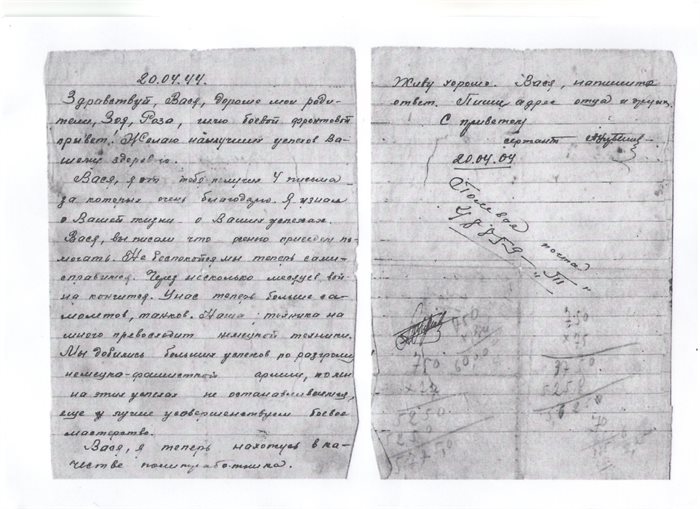 20.04.44.
Здравствуй, Вася, дорогие мои роди-
тели, Зоя, Роза, шлю боевой фронтовой
привет! Желаю наилучших успехов Ва-
шему здоровию.
Вася, я от тебя получил 4 письма
за которых очень благодарю. Я узнал
о Вашей жизни о Ваших успехах.
Вася, вы писали что осенью приедем по-
могать. Не беспокойтесь мы теперь сами
справимся. Через несколько месяцев вой
на кончится. У нас теперь больше са-
молетов, танков. Наша техника на
много превосходит немецкой техники.
Мы добились больших успехов по разгрому
немецко-фашистской армии, но мы
на этих успехах не останавливаемся,
еще лучше усовершенствуем боевое
мастерство.
Вася, я теперь нахожусь в ка-
честве политработника.
Живу хорошо. Вася, напишите
ответ. Пиши адрес отца и других.
С приветом
сержант
20.04.04
Полевая почта
48859-"П"
750
750
x 75
750
x 27
3750
5250
5250